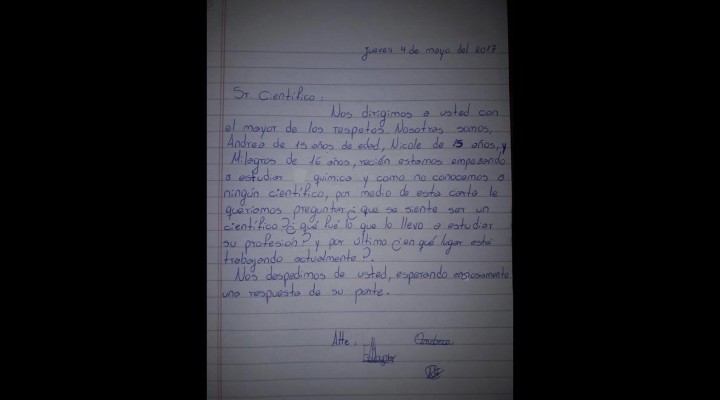 jueves 4 de mayo del 2017
Sr. Científico:
Nos dirigimos a usted con
el mayor de los respetos. Nosotras somos,
Andrea de 15 años de edad, Nicole de 15 años, y
Milagros de 16 años, recién estamos empezando
a estudiar química y como no conocemos a
ningún científico, por medio de esta carta le
queríamos preguntar ¿que se siente ser un
científico? ¿qué fué lo que lo llevo a estudiar
su profesión? y por último ¿en qué lugar está
trabajando actualmente?.
Nos despedimos de usted, esperando ansiosamente
una respuesta de su parte.
Atte: